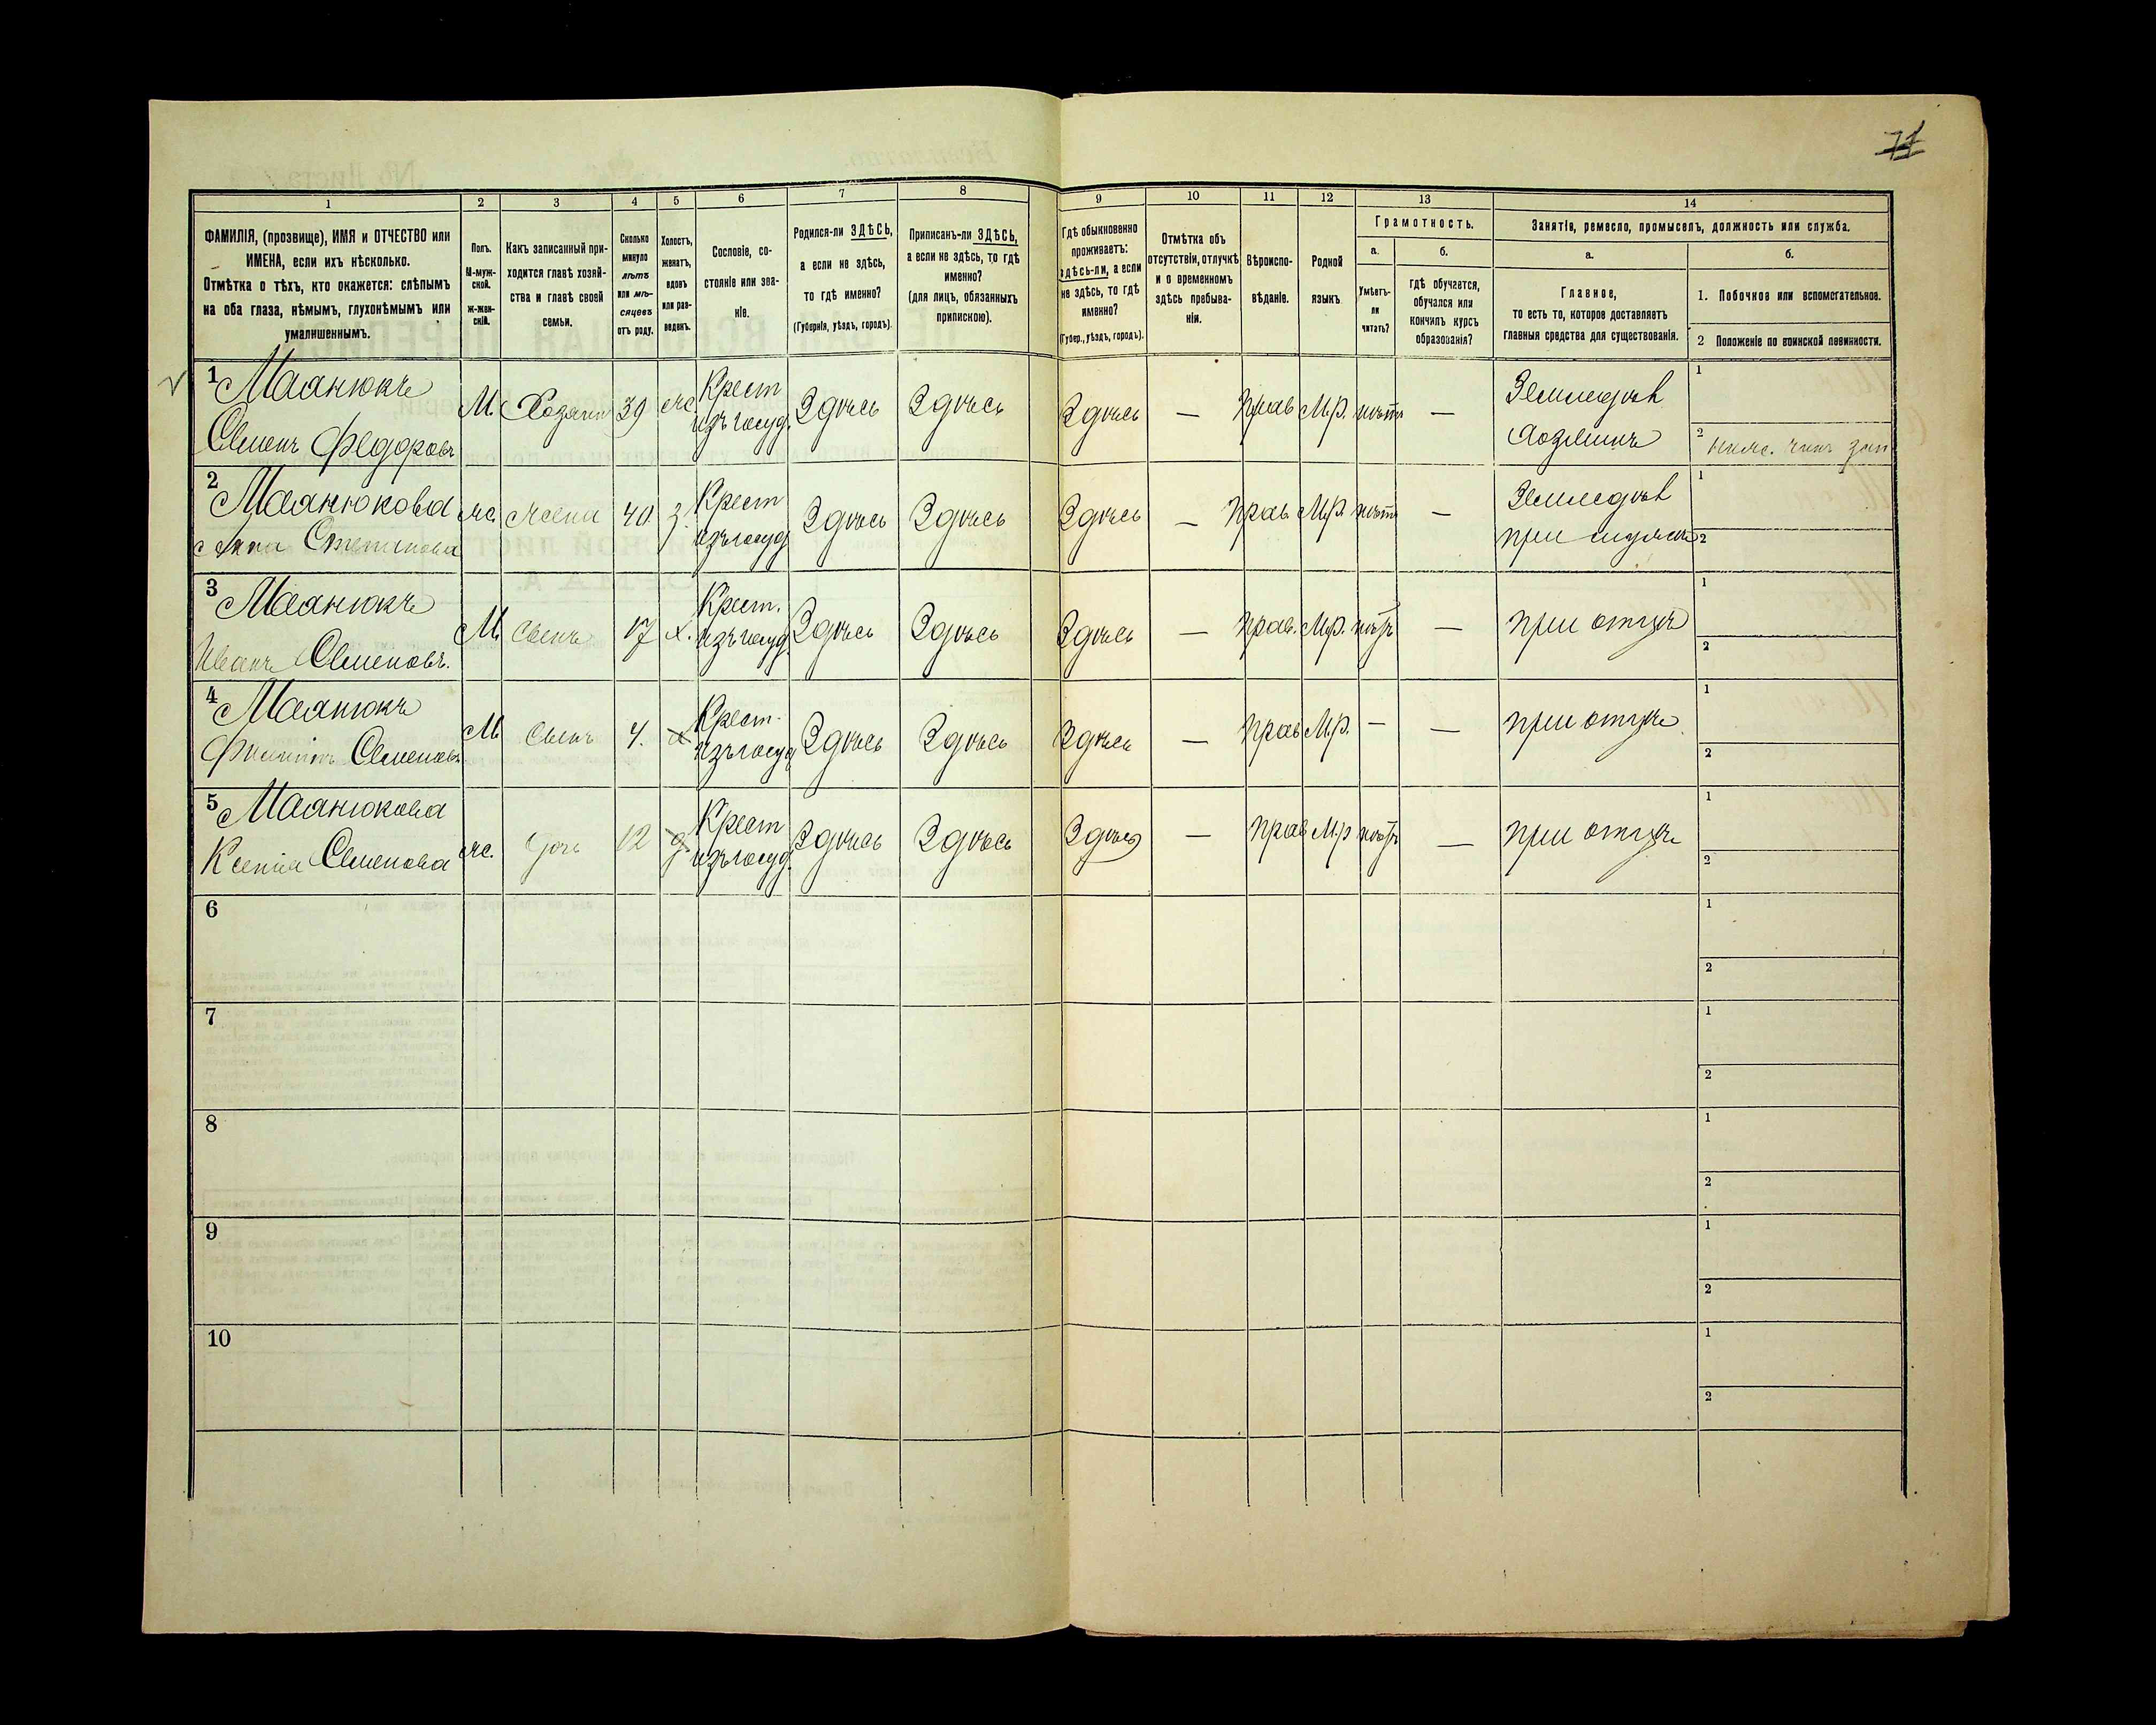 71
1 2 3 4 5 6 7 8 9 10 11 12 13 14
ФАМИЛІЯ, (прозвище), ИМЯ и ОТЧЕСТВО или
ИМЕНА, если ихъ нѣсколько.
Отмѣтка о тѣхъ, кто окажется: слѣпымъ
на оба глаза, нѣмымъ, глухонѣмымъ или
умалишеннымъ.
Полъ.
М-муж-
ской.
ж-жен-
скій.
Какъ записанный при-
ходится главѣ хозяй-
ства и главѣ своей
семьи.
Сколько
минуло
лѣтъ
или мѣ-
сяцевъ
отъ роду.
Холостъ,
женатъ,
вдовъ
или раз-
веденъ.
Сословіе, со-
стояніе или зва-
ніе.
Родился-ли ЗДѢСЬ,
а если не здѣсь,
то гдѣ именно?
(Губернія, уѣздъ, городъ).
Приписанъ-ли ЗДѢСЬ,
а если не здѣсь, то гдѣ
именно?
(для лицъ, обязанныхъ
припискою).
Гдѣ обыкновенно
проживаетъ:
здѣсь-ли, а если
не здѣсь, то гдѣ
именно?
(Губер., уѣздъ, городъ).
Отмѣтка объ
отсутствіи, отлучкѣ
и о временномъ
здѣсь пребыва-
ніи.
Вѣроиспо-
вѣданіе.
Родной
языкъ.
Грамотность.
а.
Умѣетъ-
ли
читать?
б.
гдѣ обучается,
обучался или
кончилъ курсъ
образованія?
Занятія, ремесло, промыселъ, должность или служба.
а.
Главное,
то есть то, которое доставляетъ
главныя средства для существованія.
б.
1. Побочное или вспомогательное.
2 Положеніе по воинской повинности.
1 Маанюкъ
Семенъ Федоровъ
М. Хозяин 39 ж. Крест
изъ госуд. Здѣсь Здѣсь Здѣсь — Прав М.р. нѣтъ — Земледѣл
хозяинъ
1
2 нижс. чинъ зап
2 Маанюкова
Анна Степанова
ж. жена 40 з. Крест
изъ госуд Здѣсь Здѣсь Здѣсь — Прав М.р. нѣтъ — Земледѣл
при
1
2
3 Маанюкъ
Иванъ Семеновъ.
М. сынъ 17 х. Крест.
изъ госуд. Здѣсь Здѣсь Здѣсь — Прав. М.р. нѣтъ — при отцѣ
1
2
4 Маанюкъ
Филиппъ Семеновъ
М сынъ 4. х Крест.
изъ госуд Здѣсь Здѣсь Здѣсь — Прав М.р. — — при отцѣ
1
2
5 Маанюкова
Ксенія Семенова
ж. дочь 12 д. Крест
изъ госуд. Здѣсь Здѣсь Здѣсь — прав М.р нѣтъ — при отцѣ
1
2
6
1
2
7
1
2
8
1
2
9
1
2
10
1
2